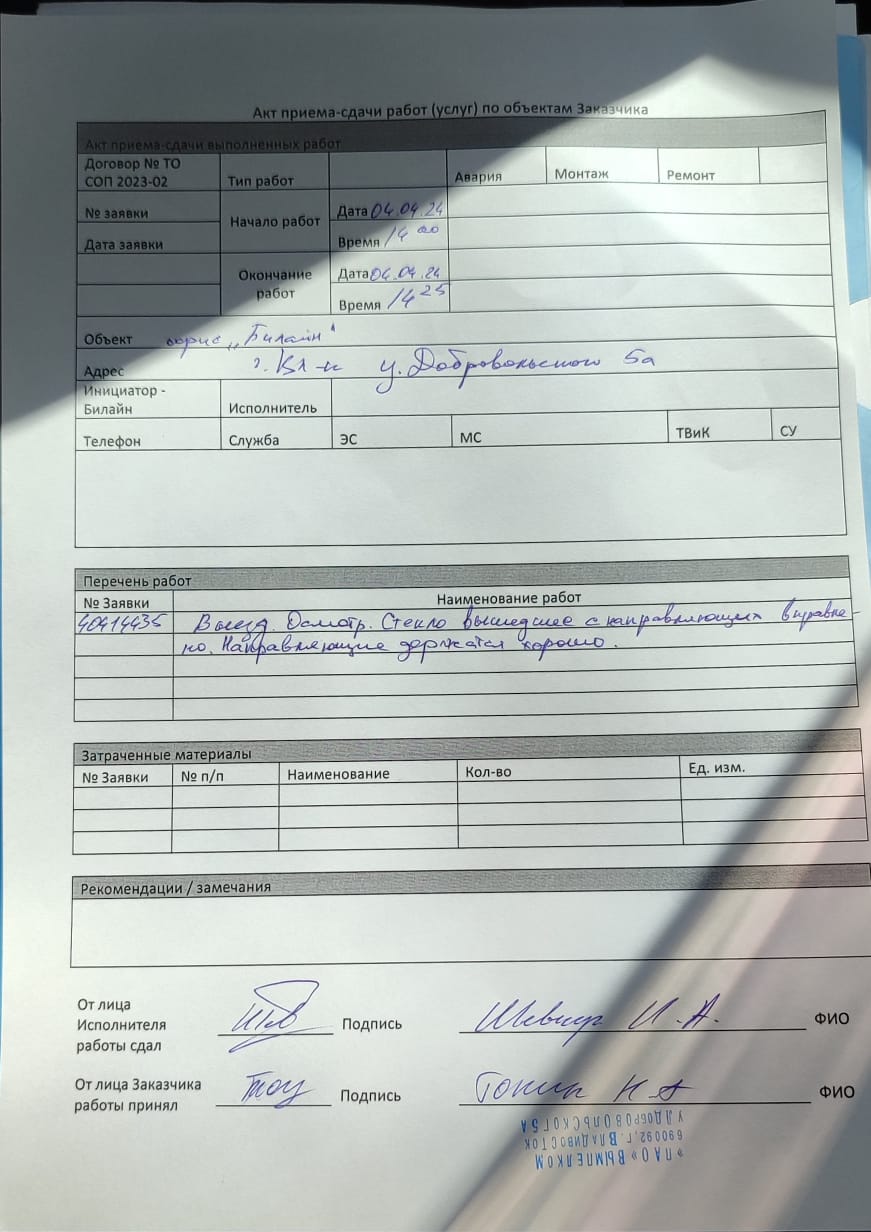 Акт приема-сдачи работ (услуг) по объектам Заказчика
Акт приема-сдачи выполненных работ
Договор № ТО СОП 2023-02 Тип работ Авария Монтаж Ремонт
№ заявки Начало работ Дата 04.04.24
Дата заявки Время 14 00
Окончание работ Дата 04.04.24
Время 14 25
Объект офис „Билайн"
Адрес г. Вл-к у. Добровольского 5а
Инициатор - Билайн Исполнитель
Телефон Служба ЭС МС ТВиК СУ
Перечень работ
№ Заявки Наименование работ
40414435 Выезд. Осмотр. Стекло вышедшее с направляющих вправле-
но. Направляющие держатся хорошо.
Затраченные материалы
№ Заявки № п/п Наименование Кол-во Ед. изм.
Рекомендации / замечания
От лица
Исполнителя Подпись И. А. ФИО
работы сдал
От лица Заказчика Подпись ФИО
работы принял
У ДОБРОВОЛЬСКОГ 5А
690092, Г. ВЛАДИВОСТОК
»ПАО» ВЫМПЕЛКОМ